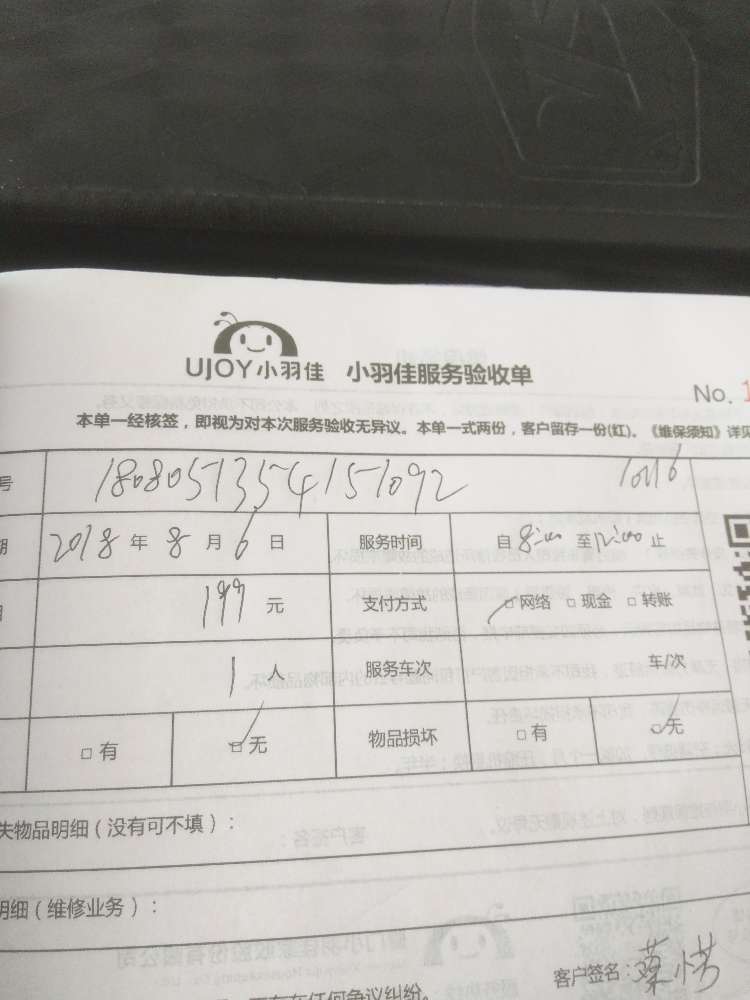 UJOY小羽佳 小羽佳服务验收单
No. 1
本单一经核签，即视为对本次服务验收无异议。本单一式两份，客户留存一份(红)。《维保须知》详见
号 1808051354151092
期 2018 年 8 月 6 日 服务时间 自 8:00 至 12:00 止
199 元 支付方式 □网络 □现金 □转账
1 人 服务车次 车/次
□有 □无 物品损坏 □有 □无
失物品明细（没有可不填）：
明细（维修业务）：
客户签名：
存在任何争议纠纷。